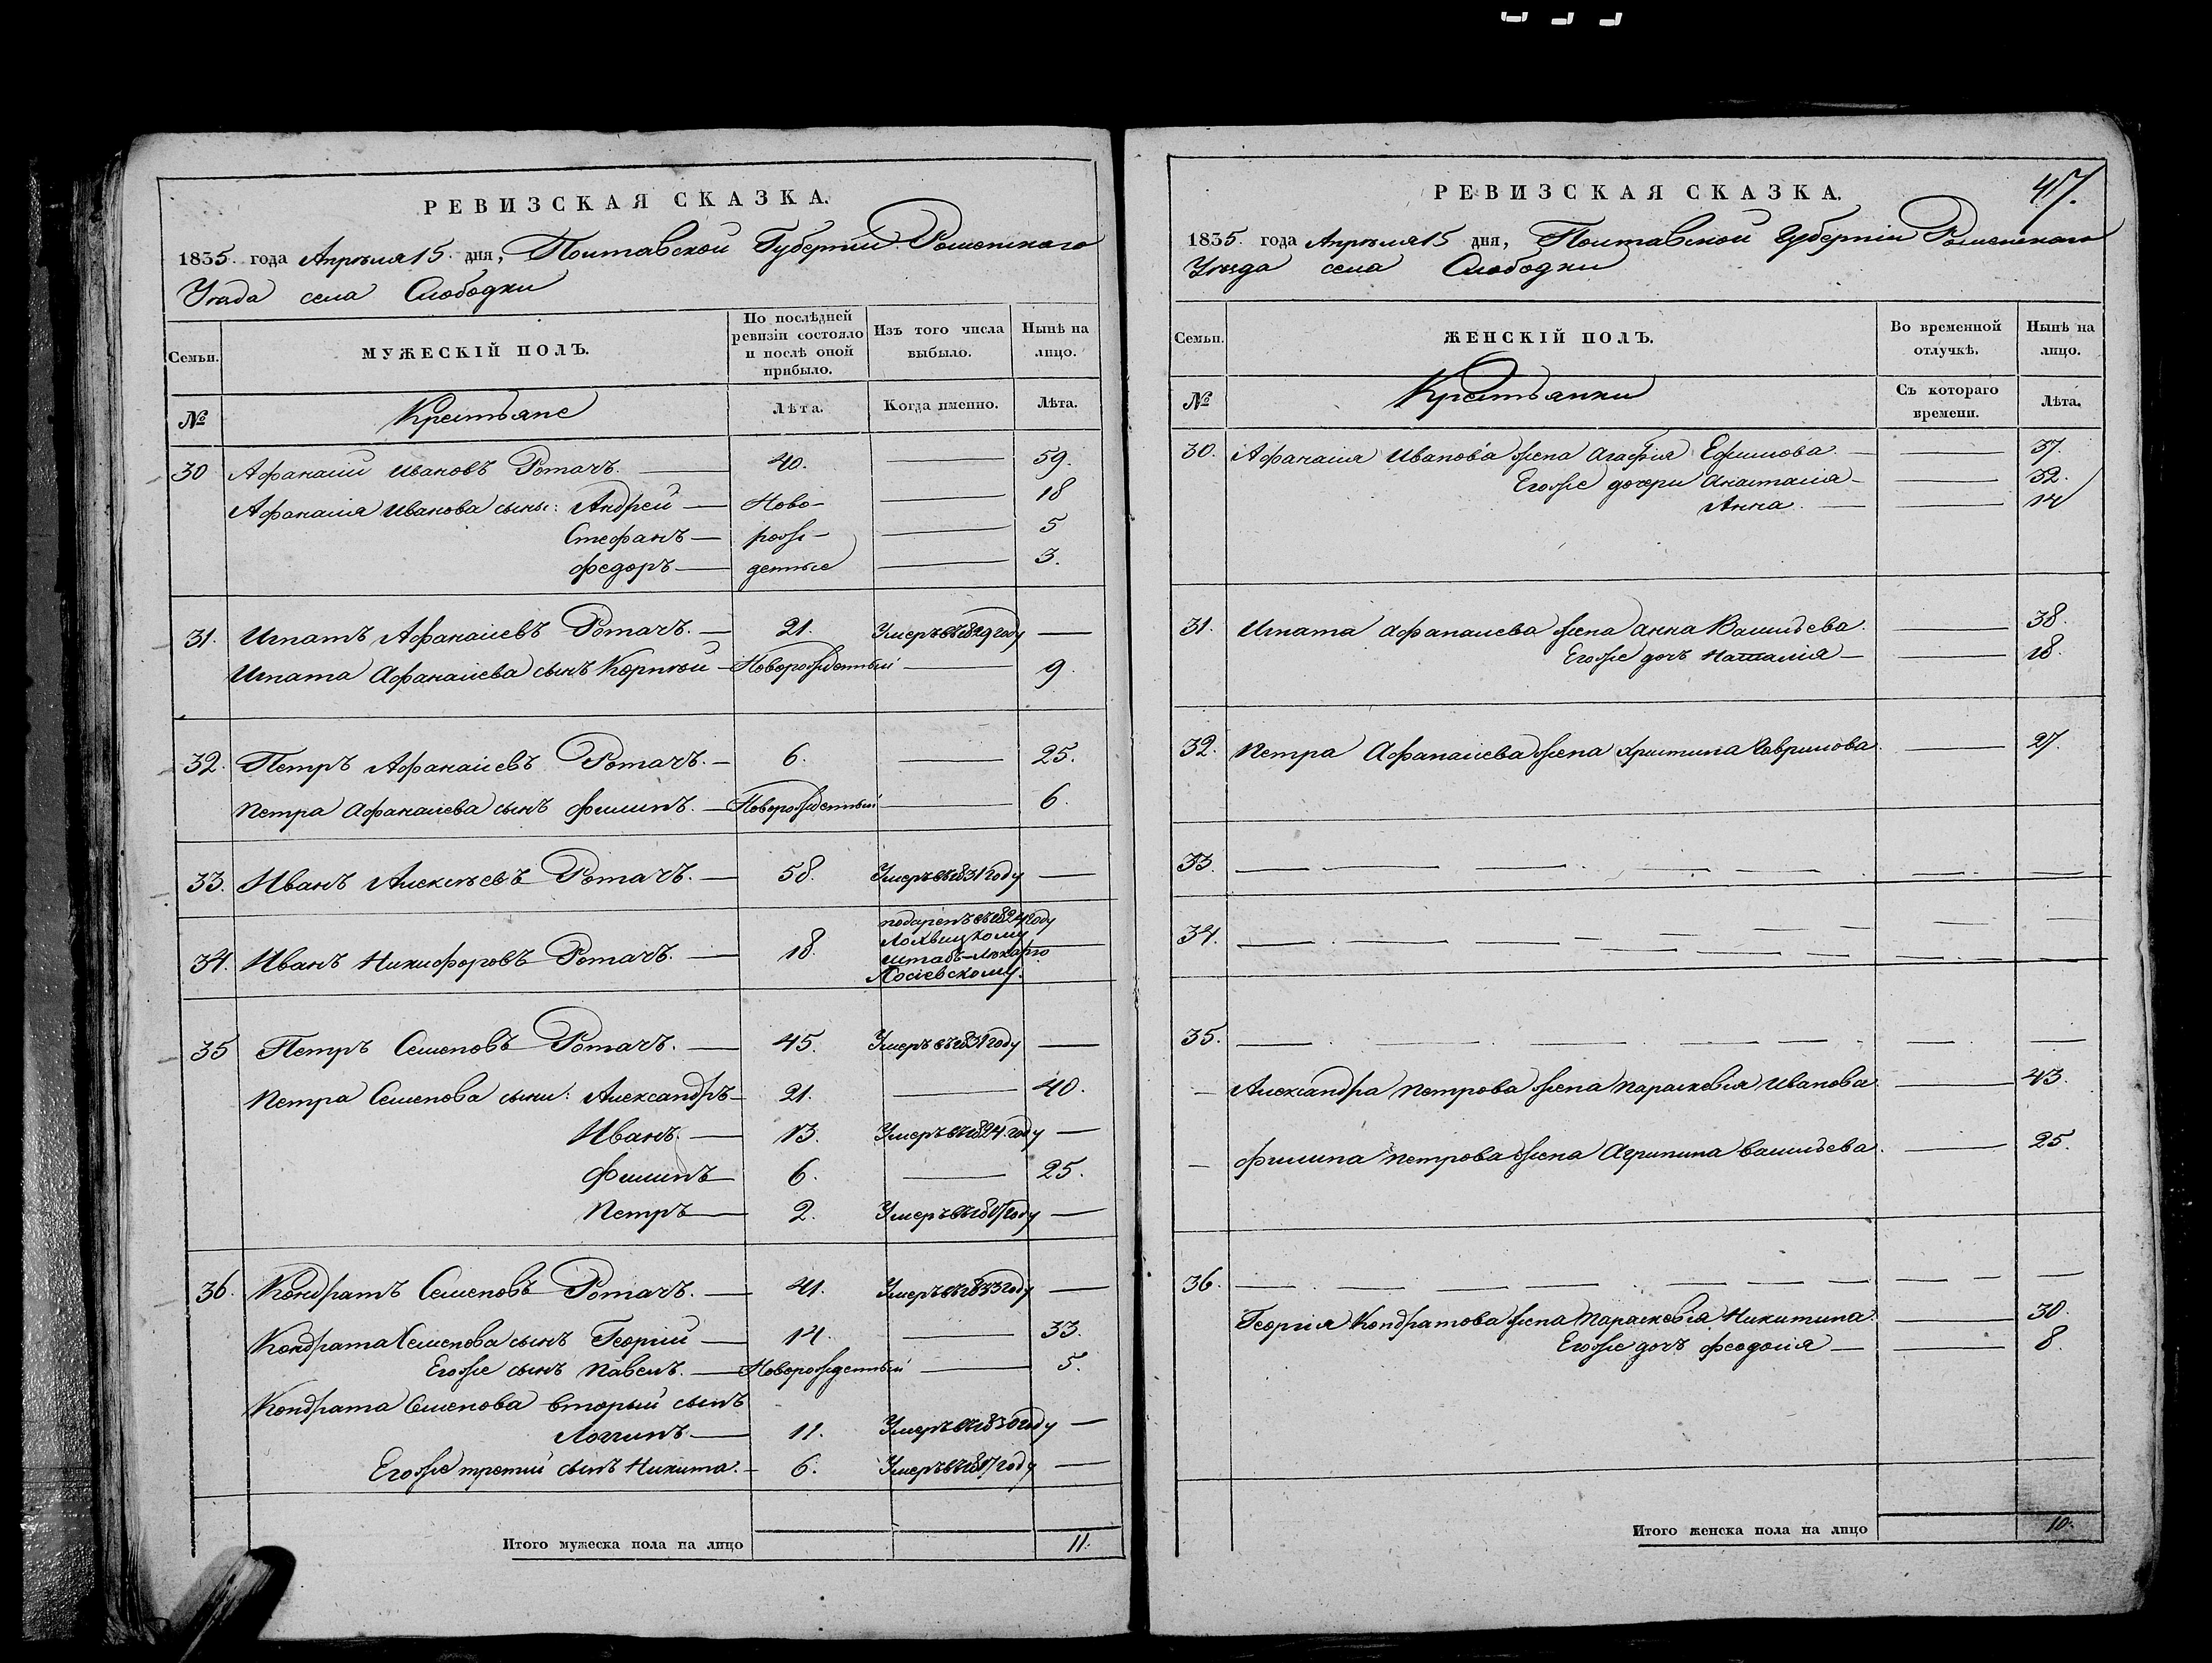 РЕВИЗСКАЯ СКАЗКА.
1835. года Апрѣля 15. дня, Полтавской Губерніи Роменскаго
Уѣзда села Слободки
Семьи.
МУЖЕСКІЙ ПОЛЪ.
По послѣдней ревизіи состояло и послѣ оной прибыло.
Изъ того числа выбыло.
Нынѣ на лицо.
№
Крестьяне
Лѣта.
Когда именно.
Лѣта.
30 Афанасій Ивановъ Ротачъ. — 40. — 59.
Афанасія Иванова сыны: Андрей — Ново- — 18
Стефанъ — рож- — 5
Федоръ — денные — 3.
31. Игнатъ Афанасіевъ Ротачъ. — 21. Умеръ въ 1829 году —
Игната Афанасіева сынъ Корнѣй — Новорожденный — 9.
32. Петръ Афанасіевъ Ротачъ. — 6. — 25.
Петра Афанасіева сынъ Филипъ. — Новорожденный — 6.
33. Иванъ Алексѣевъ Ротачъ. — 58. Умеръ въ 1831 году —
34. Иванъ Никифоровъ Ротачъ. — 18. подаренъ въ 1824 году
Лохвицкому
штабъ-лѣкарю —
Лосіевскому.
35 Петръ Семеновъ Ротачъ. — 45. Умеръ въ 1831 году —
Петра Семенова сыны: Александръ — 21. — 40.
Иванъ. — 13. Умеръ въ 1824. году —
Филипъ — 6. — 25.
Петръ — 2. Умеръ въ 1817 году —
36. Кондратъ Семеновъ Ротачъ. — 41. Умеръ въ 1833 году —
Кондрата Семенова сынъ Георгій — 14. — 33.
Егоже сынъ Павелъ. — Новорожденный — 5.
Кондрата Семенова вторый сынъ
Логгинъ — 11. Умеръ въ 1830 году —
Егоже третій сынъ Никита. — 6. Умеръ въ 1817 году —
Итого мужеска пола на лицо 11.
РЕВИЗСКАЯ СКАЗКА. 47.
1835. года Апрѣля 15 дня, Полтавской Губерніи Роменскаго
Уѣзда села Слободки
Семьи.
ЖЕНСКІЙ ПОЛЪ.
Во временной отлучкѣ.
Нынѣ на лицо.
№
Крестьянки
Съ котораго времени.
Лѣта.
30. Афанасія Иванова жена Агафія Ефимова. — 37.
Егоже дочери Анастасія — 32.
Анна. — 14
31. Игната Афанасіева жена Анна Васильева. — 38.
Егоже дочь Наталія — 18.
32. Петра Афанасіева жена Христина Гаврилова. — 27.
33.
34.
35.
— Александра Петрова жена Параскевія Иванова — 43.
— Филипа Петрова жена Агрипина Васильева. — 25.
36.
Георгія Кондратова жена Параскевія Никитина. — 30.
Егоже дочь Феодосія — 8.
Итого женска пола на лицо 10.